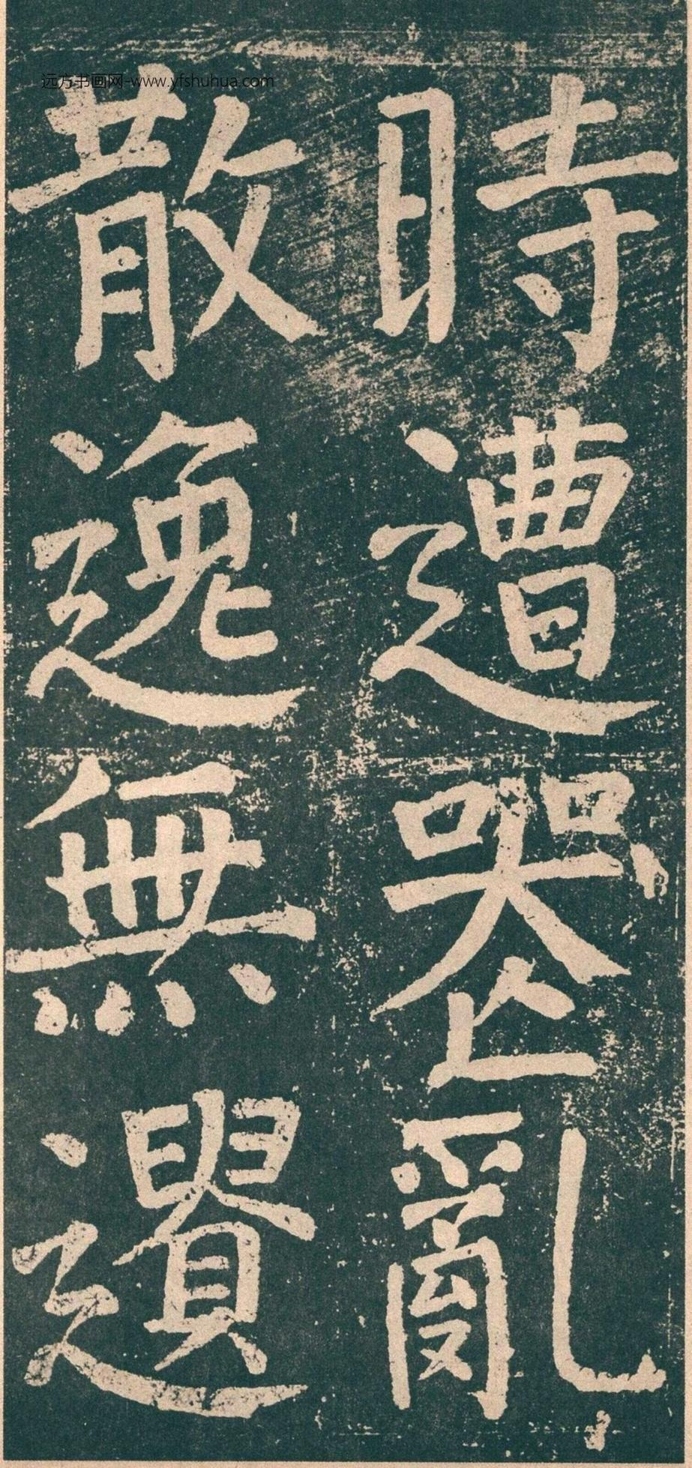 远方书画网-www.yfshuhua.com
時遭喪亂
散逸無遺